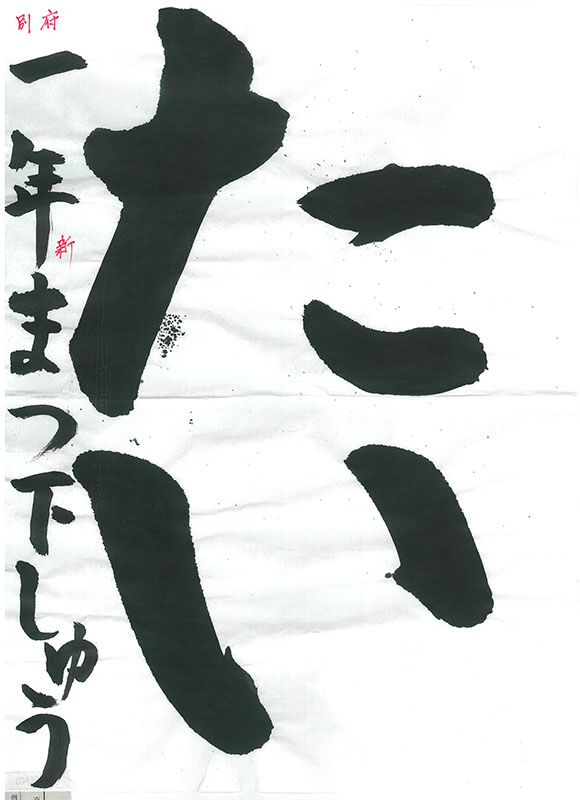 たい
一年まつ下しゅう
別府
新